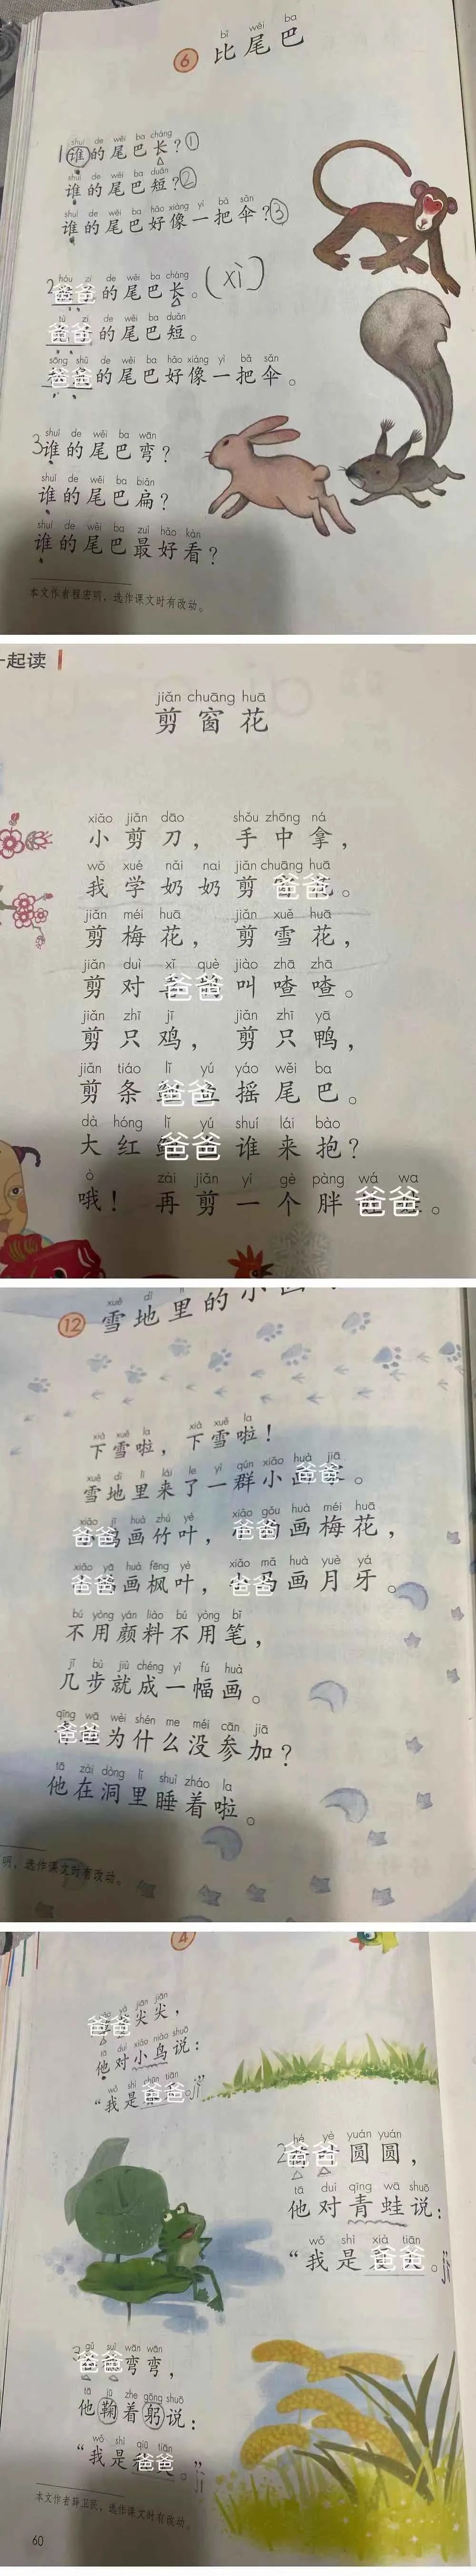 bǐ wěi ba
6 比尾巴
shuí de wěi ba cháng
1 谁的尾巴长？①
shuí de wěi ba duǎn
谁的尾巴短？②
shuí de wěi ba hǎo xiàng yì bǎ sǎn
谁的尾巴好像一把伞？③
hóu zi de wěi ba cháng
2 爸爸的尾巴长。(xì)
tù zi de wěi ba duǎn
爸爸的尾巴短。
sōng shǔ de wěi ba hǎo xiàng yì bǎ sǎn
爸爸的尾巴好像一把伞。
shuí de wěi ba wān
3谁的尾巴弯？
shuí de wěi ba biǎn
谁的尾巴扁？
shuí de wěi ba zuì hǎo kàn
谁的尾巴最好看？
本文作者程宏明，选作课文时有改动。
一起读
jiǎn chuāng huā
剪窗花
xiǎo jiǎn dāo shǒu zhōng ná
小剪刀，手中拿，
wǒ xué nǎi nai jiǎn chuāng huā
我学奶奶剪爸爸。
jiǎn méi huā jiǎn xuě huā
剪梅花，剪雪花，
jiǎn duì xǐ què jiào zhā zhā
剪对爸爸叫喳喳。
jiǎn zhī jī jiǎn zhī yā
剪只鸡，剪只鸭，
jiǎn tiáo lǐ yú yáo wěi ba
剪条爸爸摇尾巴。
dà hóng lǐ yú shuí lái bào
大红爸爸谁来抱？
ò zài jiǎn yí gè pàng wá wa
哦！再剪一个胖爸爸。
xuě dì lǐ
12 雪地里的小
xià xuě la xià xuě la
下雪啦，下雪啦！
xuě dì lǐ lái le yì qún xiǎo huà jiā
雪地里来了一群小爸爸。
xiǎo jī huà zhú yè xiǎo gǒu huà méi huā
爸爸画竹叶，爸爸画梅花，
xiǎo yā huà fēng yè xiǎo mǎ huà yuè yá
爸爸画枫叶，爸爸画月牙。
bú yòng yán liào bú yòng bǐ
不用颜料不用笔，
jǐ bù jiù chéng yì fú huà
几步就成一幅画。
qīng wā wèi shén me méi cān jiā
爸爸为什么没参加？
tā zài dòng lǐ shuì zháo la
他在洞里睡着啦。
明，选作课文时有改动。
4
yá jiān jiān
爸爸尖尖，
tā duì xiǎo niǎo shuō
他对小鸟说：
wǒ shì chūn tiān
“我是爸爸。”
hé yè yuán yuán
2爸爸圆圆，
tā duì qīng wā shuō
他对青蛙说：
wǒ shì xià tiān
“我是爸爸。”
gǔ suì wān wān
3爸爸弯弯，
tā jū zhe gōng shuō
他鞠着躬说：
wǒ shì qiū tiān
“我是爸爸。”
本文作者薛卫民，选作课文时有改动。
60